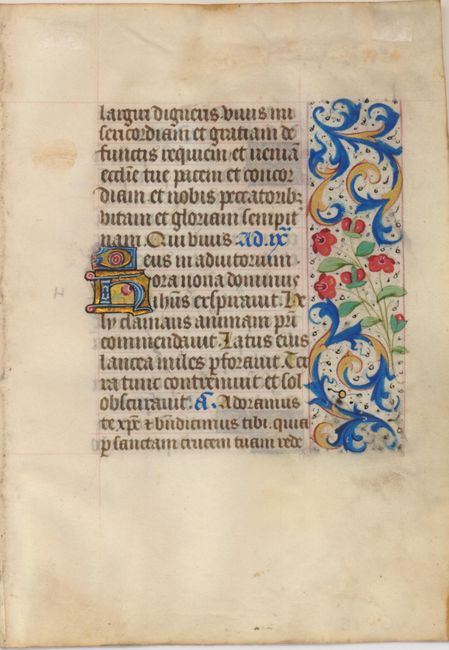 largiri digneris. viuis mi
sericordiam et gratiam de
functis requiem et ueniā
ecclīe tue pacem et concor
diam et nobis peccatoribȝ
vitam et gloriam sempit
nam. Qui viuis. Ad. ix̄
Deus in adiutorium
Hora nona dominus
ihūs expirauit. He
ly clamans animam prī
commendauit. Latus eius
lancea miles ꝑforauit. Ter
ra tunc contremuit et sol
obscurauit. a͞. Adoramus
te xp̄e et bn̄dicimus tibi. quia
ꝑ sanctam crucem tuam rede
H